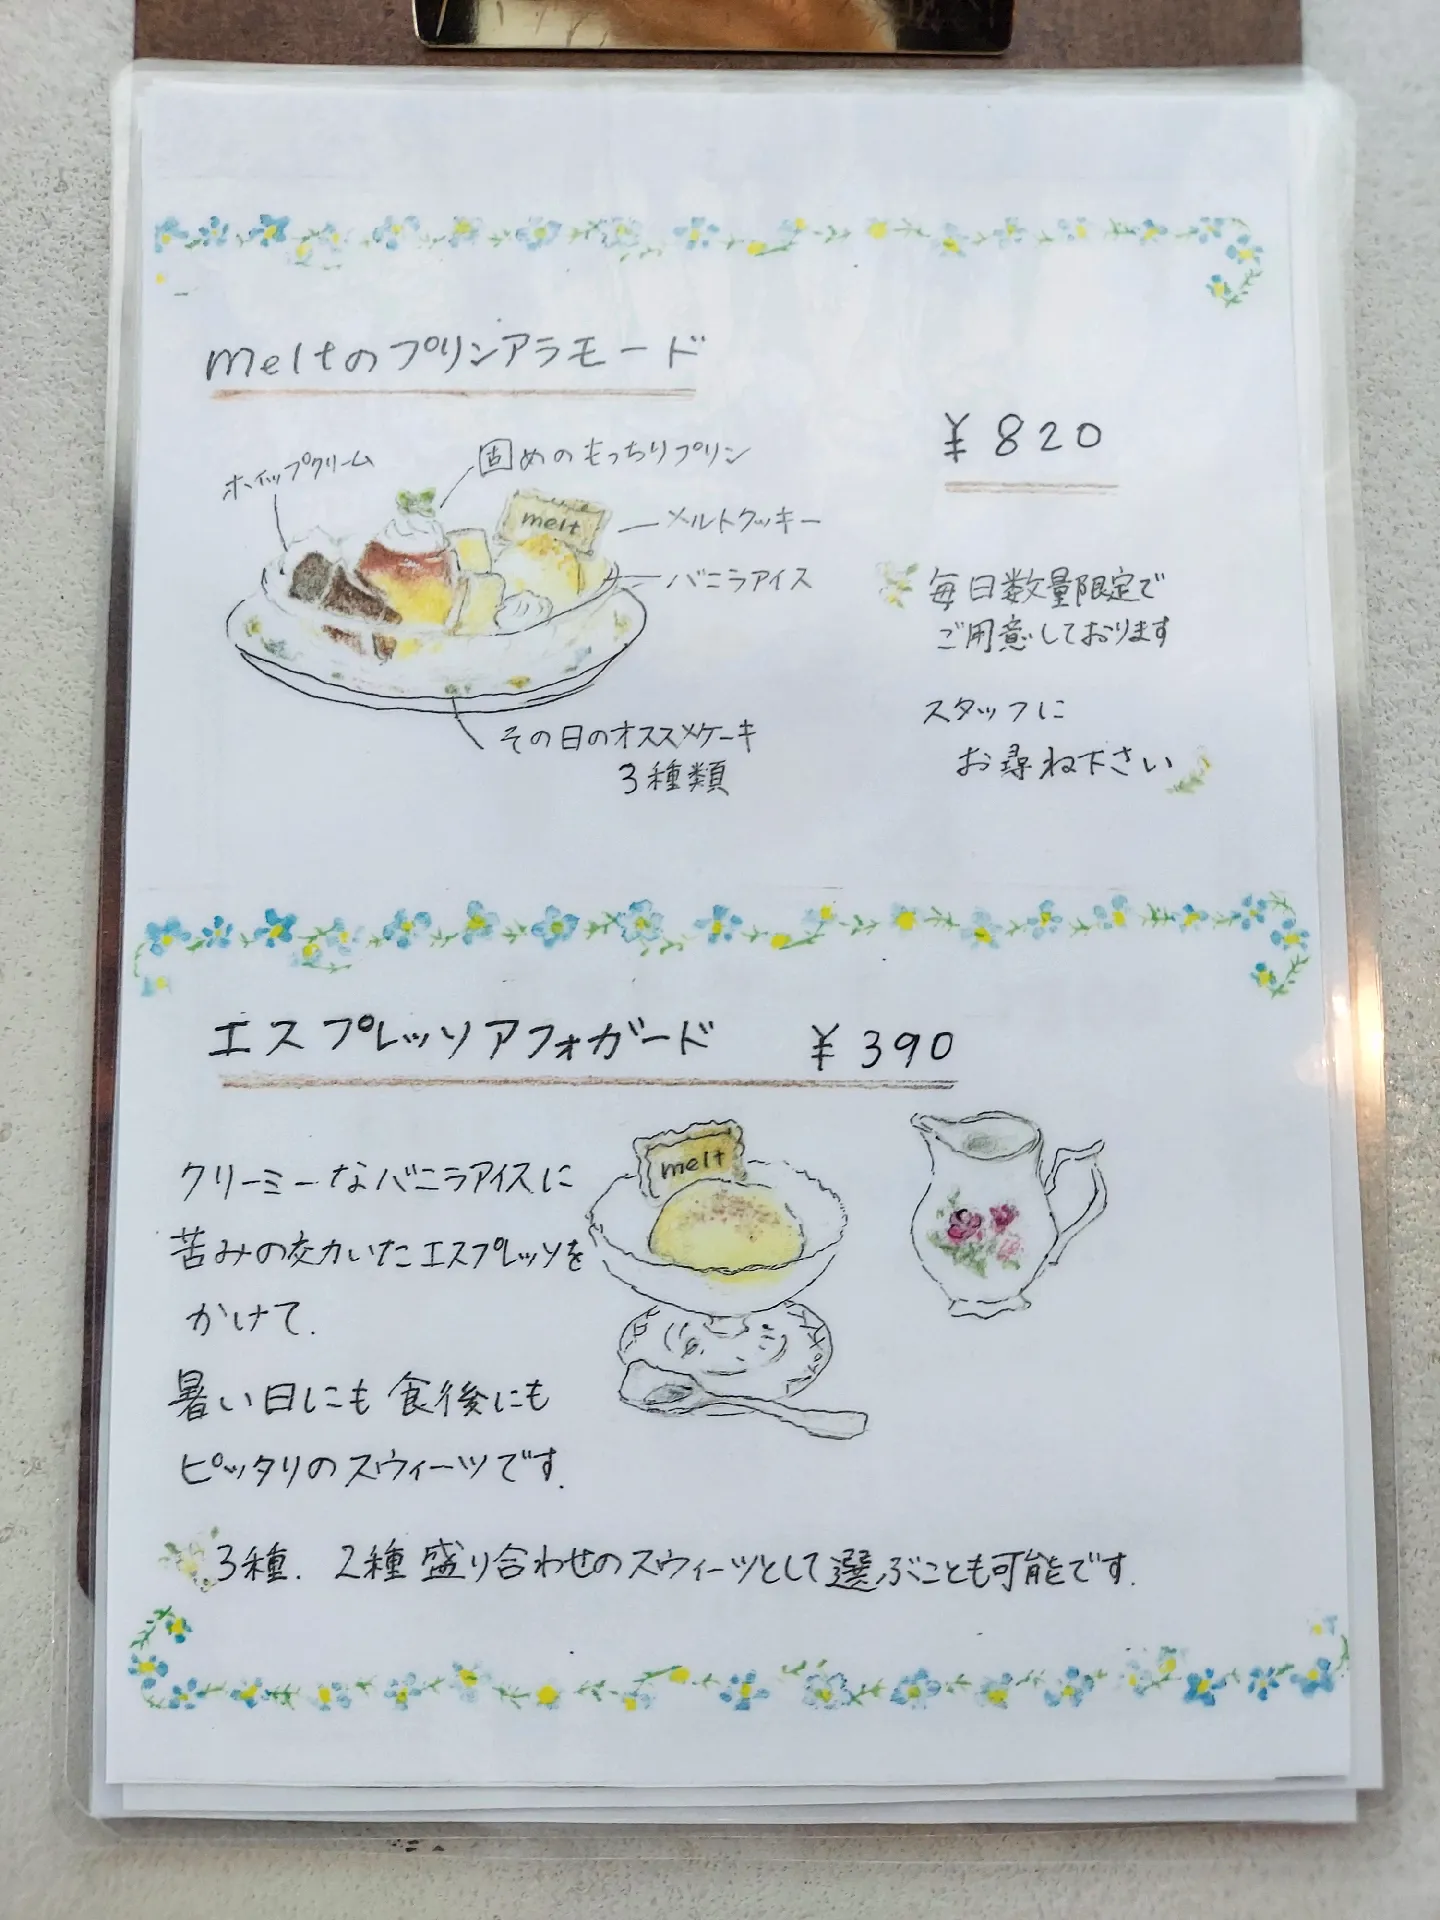 meltのプリンアラモード
¥820
ホイップクリーム
固めのもっちりプリン
melt
メルトクッキー
バニラアイス
その日のオススメケーキ
3種類
毎日数量限定で
ご用意しております
スタッフに
お尋ね下さい
エスプレッソアフォガード ¥390
クリーミーなバニラアイスに
苦みの効いたエスプレッソを
かけて.
暑い日にも食後にも
ピッタリのスウィーツです.
melt
3種. 2種盛り合わせのスウィーツとして選ぶことも可能です.